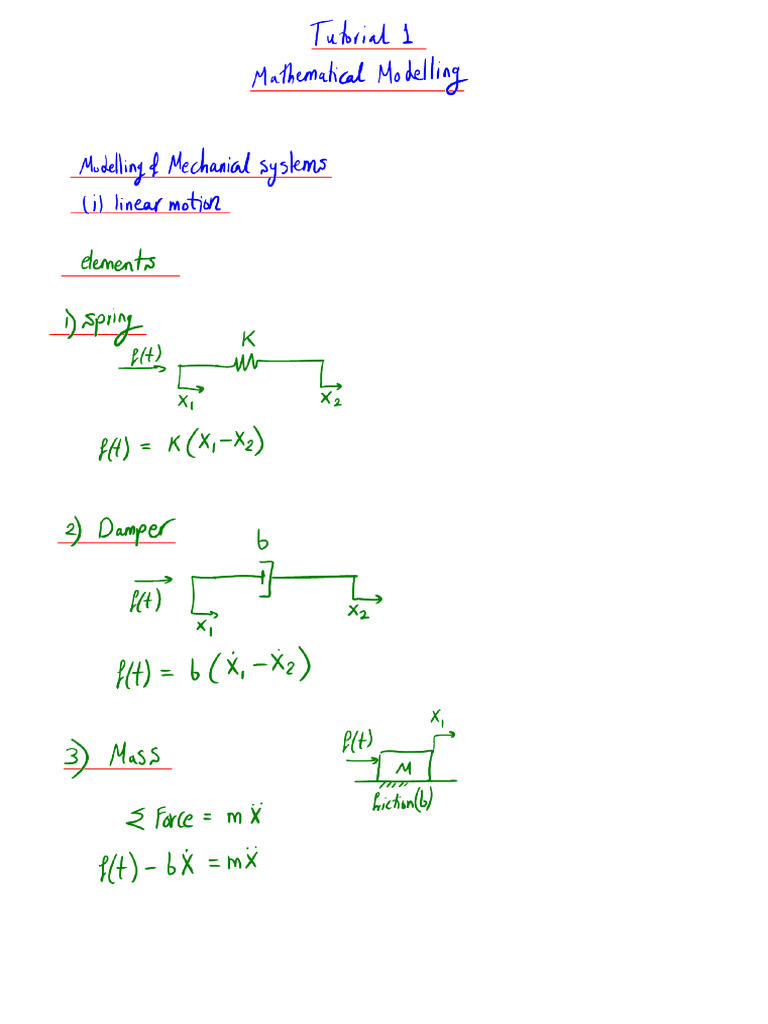 Tutorial 1
Mathematical Modelling
Modelling of Mechanial systems
(i) linear motion
elements
1) spring
f(t)
K
X₁
X₂
f(t) = K(X₁-X₂)
2) Damper
b
f(t)
X₁
X₂
f(t) = b(Ẋ₁-Ẋ₂)
3) Mass
X₁
f(t)
M
friction(b)
Σ Force = mẌ
f(t) - bẊ = mẌ